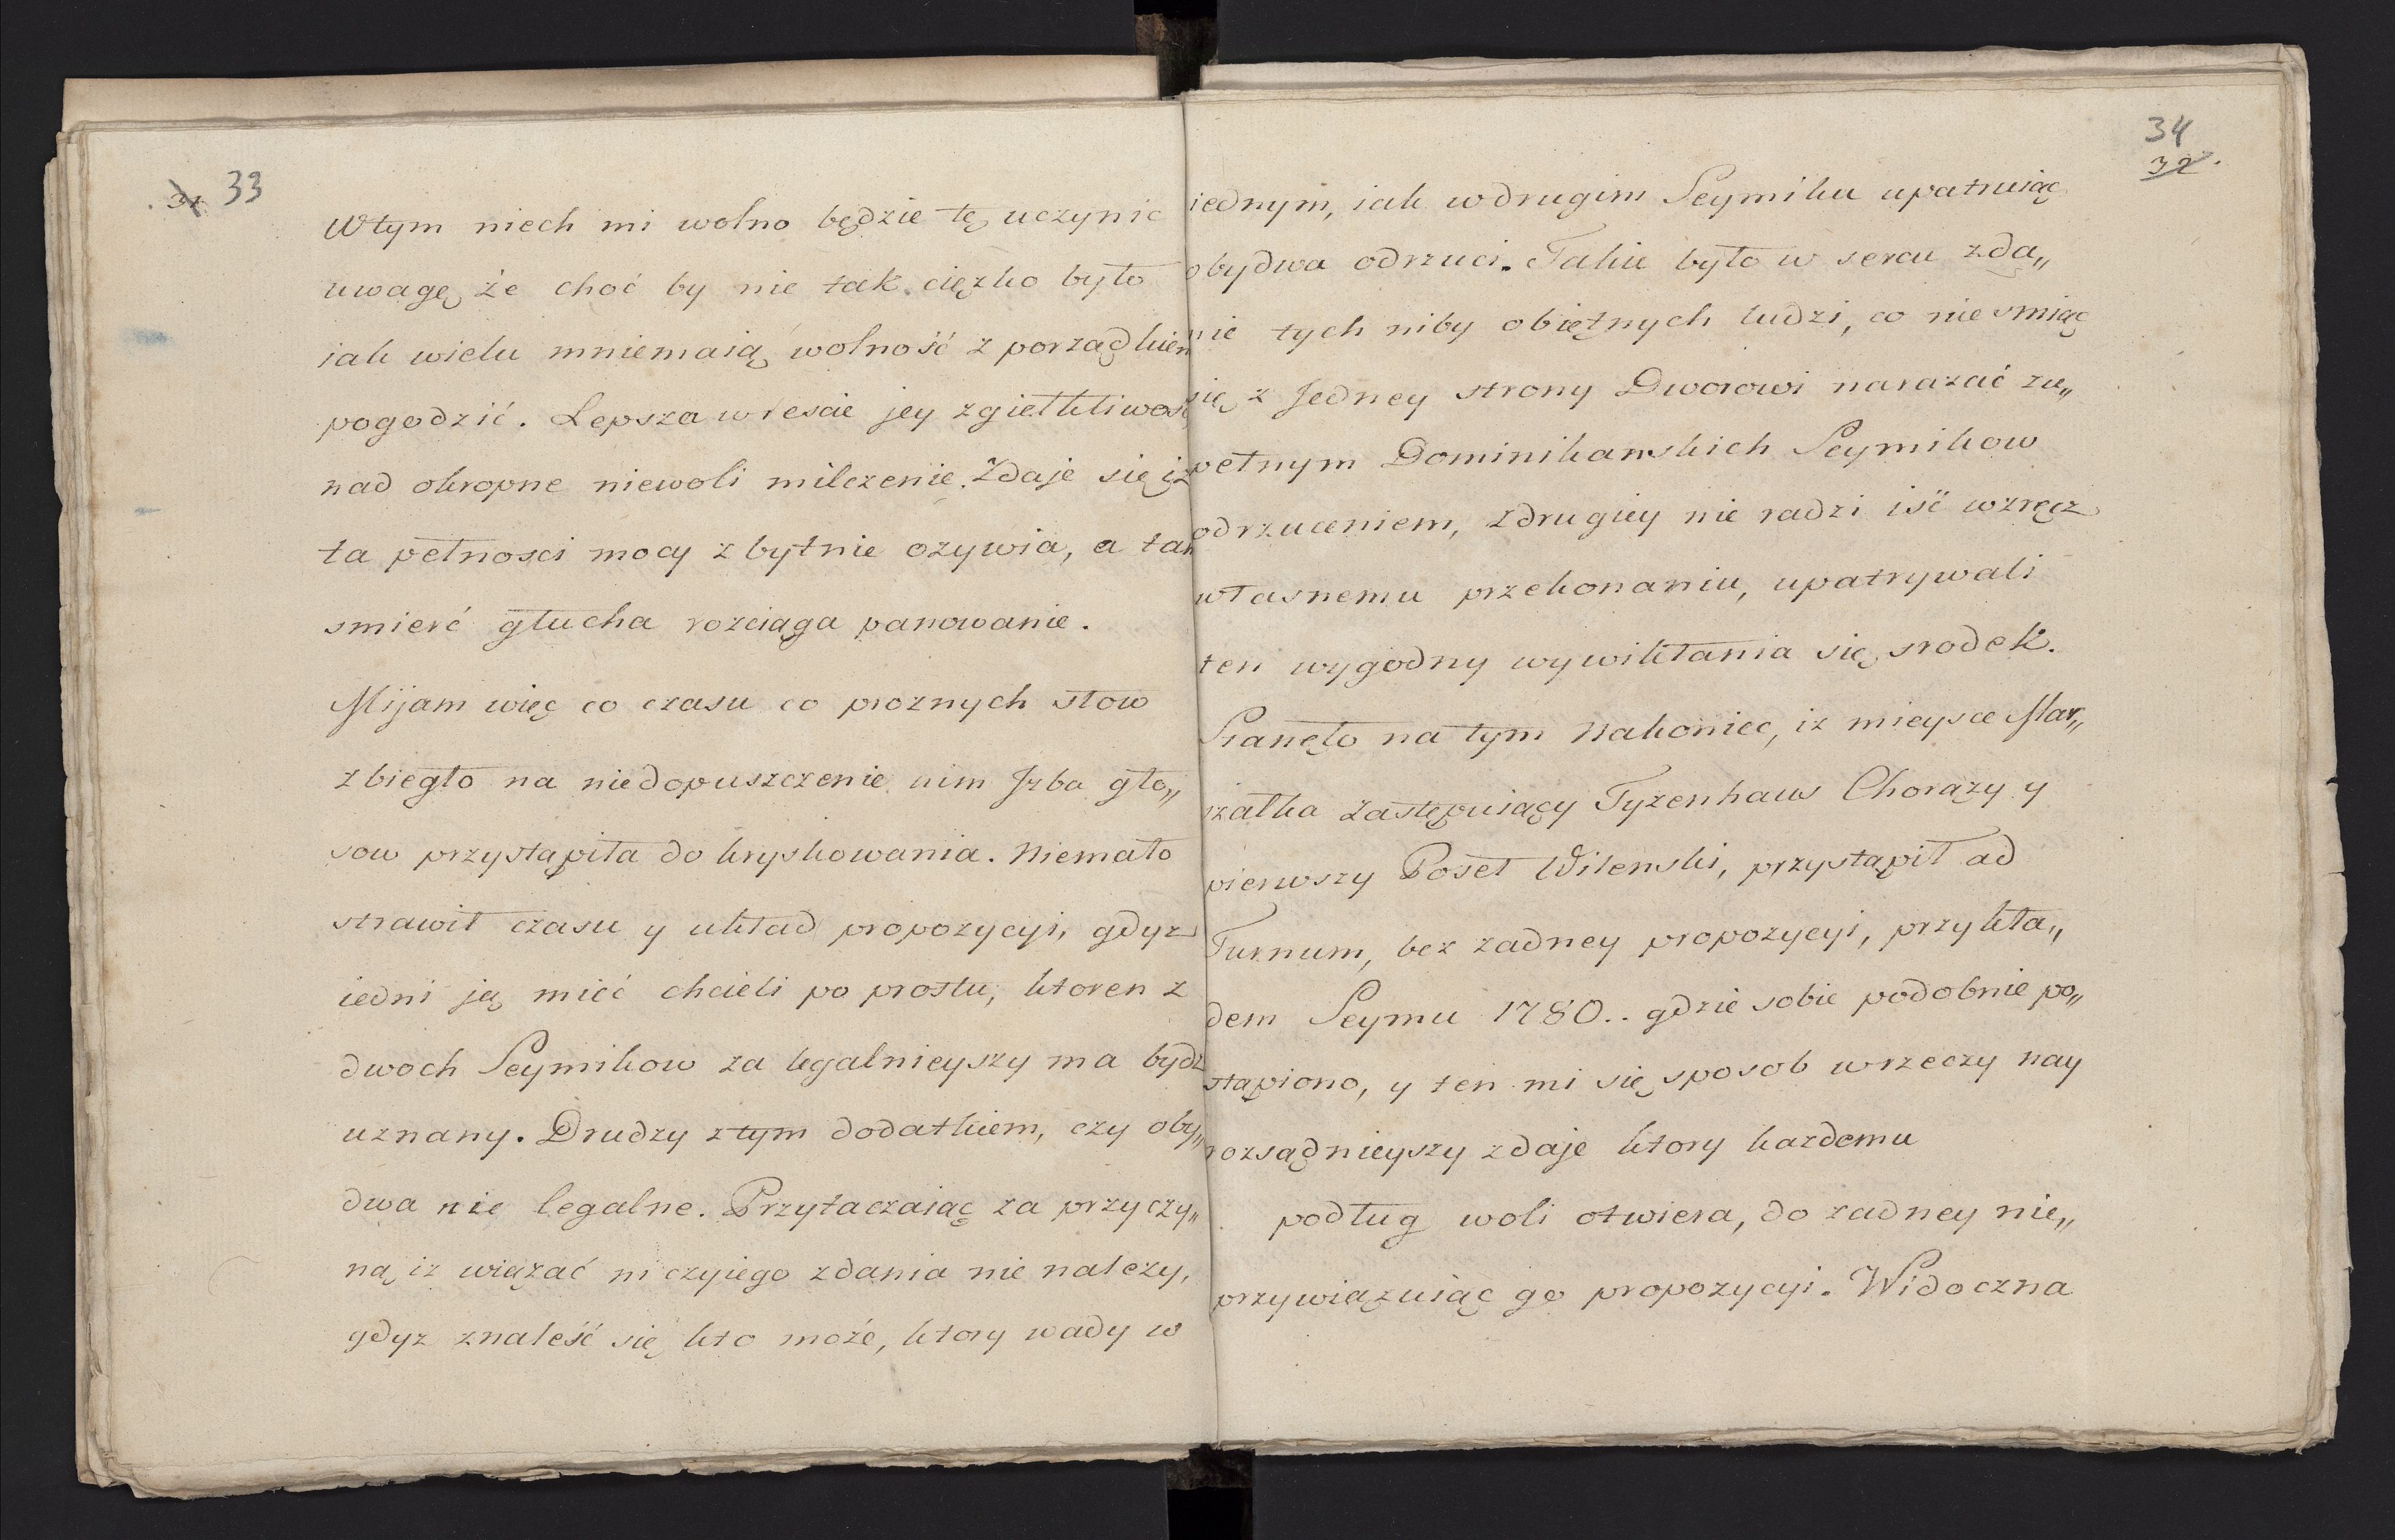 31. 33
Wtym niech mi wolno będzie tę uczynic
uwagę że choć by nie tak cięzko było
iak wielu mniemaią wolność z porządkiem
pogodzić. Lepsza wreście jey zgiełkliwość
nad okropne niewoli milczenie. Zdaje się iz
ta pełnosci mocy zbytnie ozywia, a tam
smierć głucha rozciąga panowanie.
Mijam więc co czasu co proznych słow
zbiegło na niedopuszczenie nim Jzba gło„
sow przystąpiła do kryskowania. Niemało
strawił czasu y układ propozycyi, gdyz
iedni ją mieć chcieli po prostu, ktoren z
dwoch Seymikow za legalnieyszy ma bydz
uznany. Drudzy ztym dodatkiem, czy oby„
dwa nie legalne. Przytaczaiąc za przyczy„
ną iz wiązać niczyiego zdania nie nalezy,
gdyz znaleść się kto może, ktory wady w
34
32.
iednym, iak wdrugim Seymiku upatruiąc
obydwa odrzuci. Takie było w sercu zda„
nie tych niby obiętnych ludzi, co nie smiąc
się z Jedney strony Dworowi narazać zu„
pełnym Dominikanskich Seymikow
odrzuceniem, zdrugiey nie radzi iść wzręcz
własnemu przekonaniu, upatrywali
ten wygodny wywikłania się srodek.
Stanęło na tym Nakoniec, iz mieysce Mar„
szałka Zastępuiący Tyzenhaus Chorązy y
pierwszy Poseł Wilenski, przystąpił ad
Turnum, bez zadney propozycyi, przykła„
dem Seymu 1780.. gdzie sobie podobnie po„
stąpiono, y ten mi się sposob wrzeczy nay
rozsądnieyszy zdaje ktory kazdemu
podług woli otwiera, do zadney nie„
przywiązuiąc go propozycyi. Widoczna